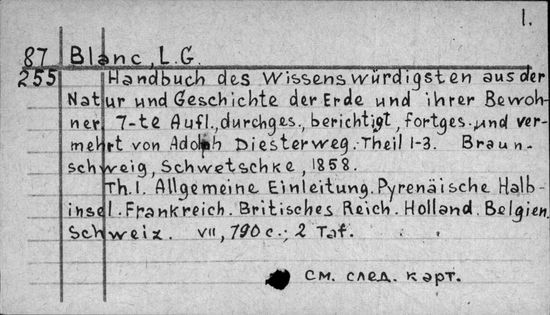 1.
87 Blanc, L.G.
255 Handbuch des Wissenswürdigsten aus der
Natur und Geschichte der Erde und ihrer Bewoh-
ner. 7-te Aufl., durchges., berichtigt, fortges. und ver-
mehrt von Adolph Diesterweg. Theil 1-3. Braun-
schweig, Schwetschke, 1858.
Th.1. Allgemeine Einleitung. Pyrenäische Halb-
insel. Frankreich. Britisches Reich. Holland. Belgien.
Schweiz. VII, 790 c.; 2 Taf.
см. след. карт.